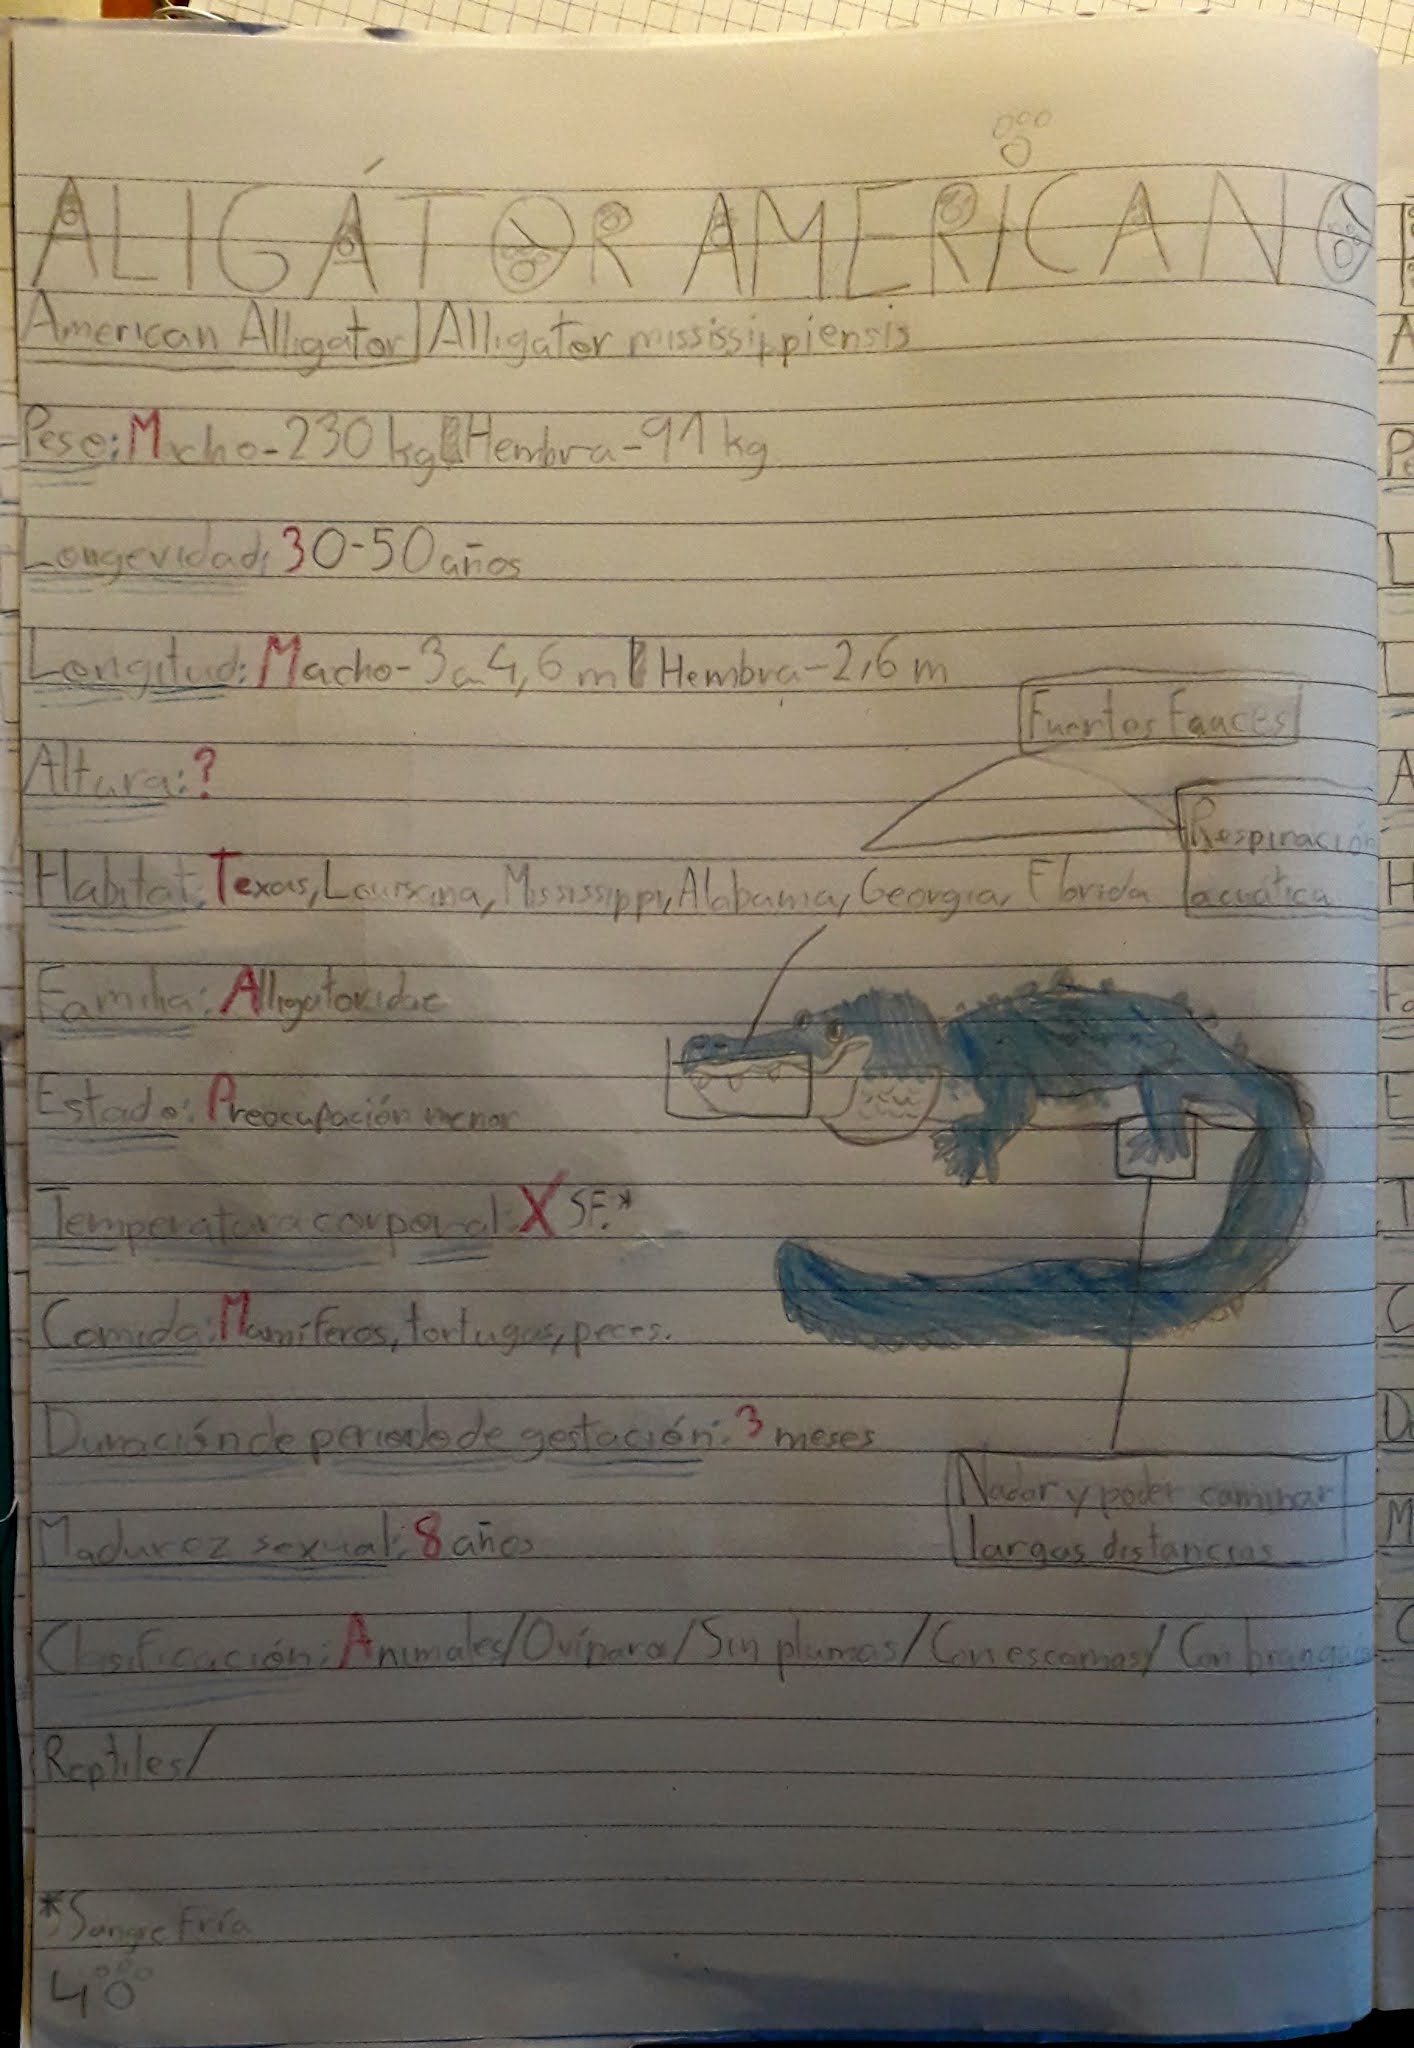 ALIGÁTOR AMERICANO
American Alligator | Alligator mississippiensis
Peso: Macho-230 kg Hembra-91 kg
Longevidad: 30-50 años
Longitud: Macho-3 a 4,6 m Hembra-2,6 m
Fuertes Fauces
Altura: ?
Respiración
acuática
Habitat: Texas, Louisiana, Mississippi, Alabama, Georgia, Florida
Familia: Alligatoridae
Estado: Preocupación menor
Temperatura corporal: X SF.*
Comida: Mamíferos, tortugas, peces.
Duración de periodo de gestación: 3 meses
Nadar y poder caminar
largas distancias
Madurez sexual: 8 años
Clasificación: Animales/Ovípara/Sin plumas/Con escamas/Con
Reptiles/
*Sangre Fría
4